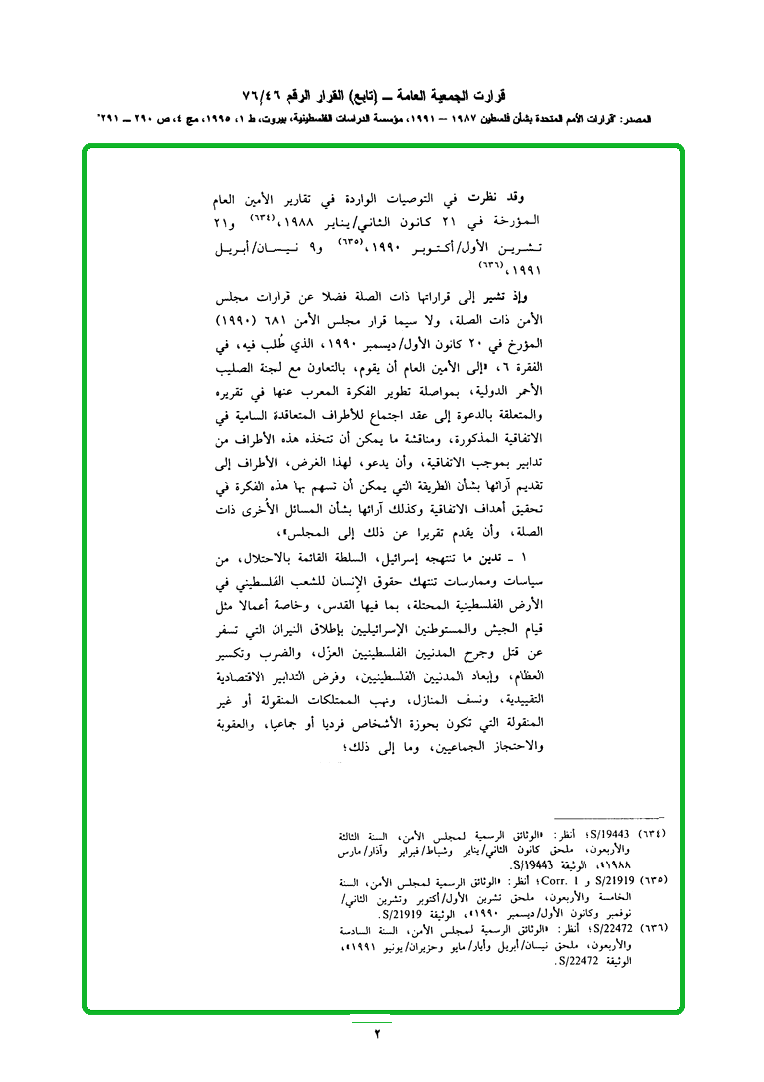 قرارت الجمعية العامة ــ (تابع) القرار الرقم ٧٦/٤٦
المصدر: "قرارات الأمم المتحدة بشأن فلسطين ١٩٨٧ – ١٩٩١، مؤسسة الدراسات الفلسطينية، بيروت، ط ١، ١٩٩٥، مج ٤، ص ٢٩٠ ــ ٢٩١"
وقد نظرت في التوصيات الواردة في تقارير الأمين العام
المؤرخة في ٢١ كانون الثاني/يناير ١٩٨٨،(٦٣٤) و٢١
تشرين الأول/أكتوبر ١٩٩٠،(٦٣٥) و٩ نيسان/أبريل
١٩٩١،(٦٣٦)
وإذ تشير إلى قراراتها ذات الصلة فضلا عن قرارات مجلس
الأمن ذات الصلة، ولا سيما قرار مجلس الأمن ٦٨١ (١٩٩٠)
المؤرخ في ٢٠ كانون الأول/ديسمبر ١٩٩٠، الذي طُلب فيه، في
الفقرة ٦، «إلى الأمين العام أن يقوم، بالتعاون مع لجنة الصليب
الأحمر الدولية، بمواصلة تطوير الفكرة المعرب عنها في تقريره
والمتعلقة بالدعوة إلى عقد اجتماع للأطراف المتعاقدة السامية في
الاتفاقية المذكورة، ومناقشة ما يمكن أن تتخذه هذه الأطراف من
تدابير بموجب الاتفاقية، وأن يدعو، لهذا الغرض، الأطراف إلى
تقديم آرائها بشأن الطريقة التي يمكن أن تسهم بها هذه الفكرة في
تحقيق أهداف الاتفاقية وكذلك آرائها بشأن المسائل الأُخرى ذات
الصلة، وأن يقدم تقريرا عن ذلك إلى المجلس»،
١ ـ تدين ما تنتهجه إسرائيل، السلطة القائمة بالاحتلال، من
سياسات وممارسات تنتهك حقوق الإنسان للشعب الفلسطيني في
الأرض الفلسطينية المحتلة، بما فيها القدس، وخاصة أعمالا مثل
قيام الجيش والمستوطنين الإسرائيليين بإطلاق النيران التي تسفر
عن قتل وجرح المدنيين الفلسطينيين العزّل، والضرب وتكسير
العظام، وإبعاد المدنيين الفلسطينيين، وفرض التدابير الاقتصادية
التقييدية، ونسف المنازل، ونهب الممتلكات المنقولة أو غير
المنقولة التي تكون بحوزة الأشخاص فرديا أو جماعيا، والعقوبة
والاحتجاز الجماعيين، وما إلى ذلك؛
(٦٣٤) S/19443؛ أنظر: «الوثائق الرسمية لمجلس الأمن، السنة الثالثة
والأربعون، ملحق كانون الثاني/يناير وشباط/فبراير وآذار/مارس
١٩٨٨»، الوثيقة S/19443.
(٦٣٥) S/21919 و Corr. 1؛ أنظر: «الوثائق الرسمية لمجلس الأمن، السنة
الخامسة والأربعون، ملحق تشرين الأول/أكتوبر وتشرين الثاني/
نوفمبر وكانون الأول/ديسمبر ١٩٩٠»، الوثيقة S/21919.
(٦٣٦) S/22472؛ أنظر: «الوثائق الرسمية لمجلس الأمن، السنة السادسة
والأربعون، ملحق نيسان/أبريل وأيار/مايو وحزيران/يونيو ١٩٩١»،
الوثيقة S/22472.
٢